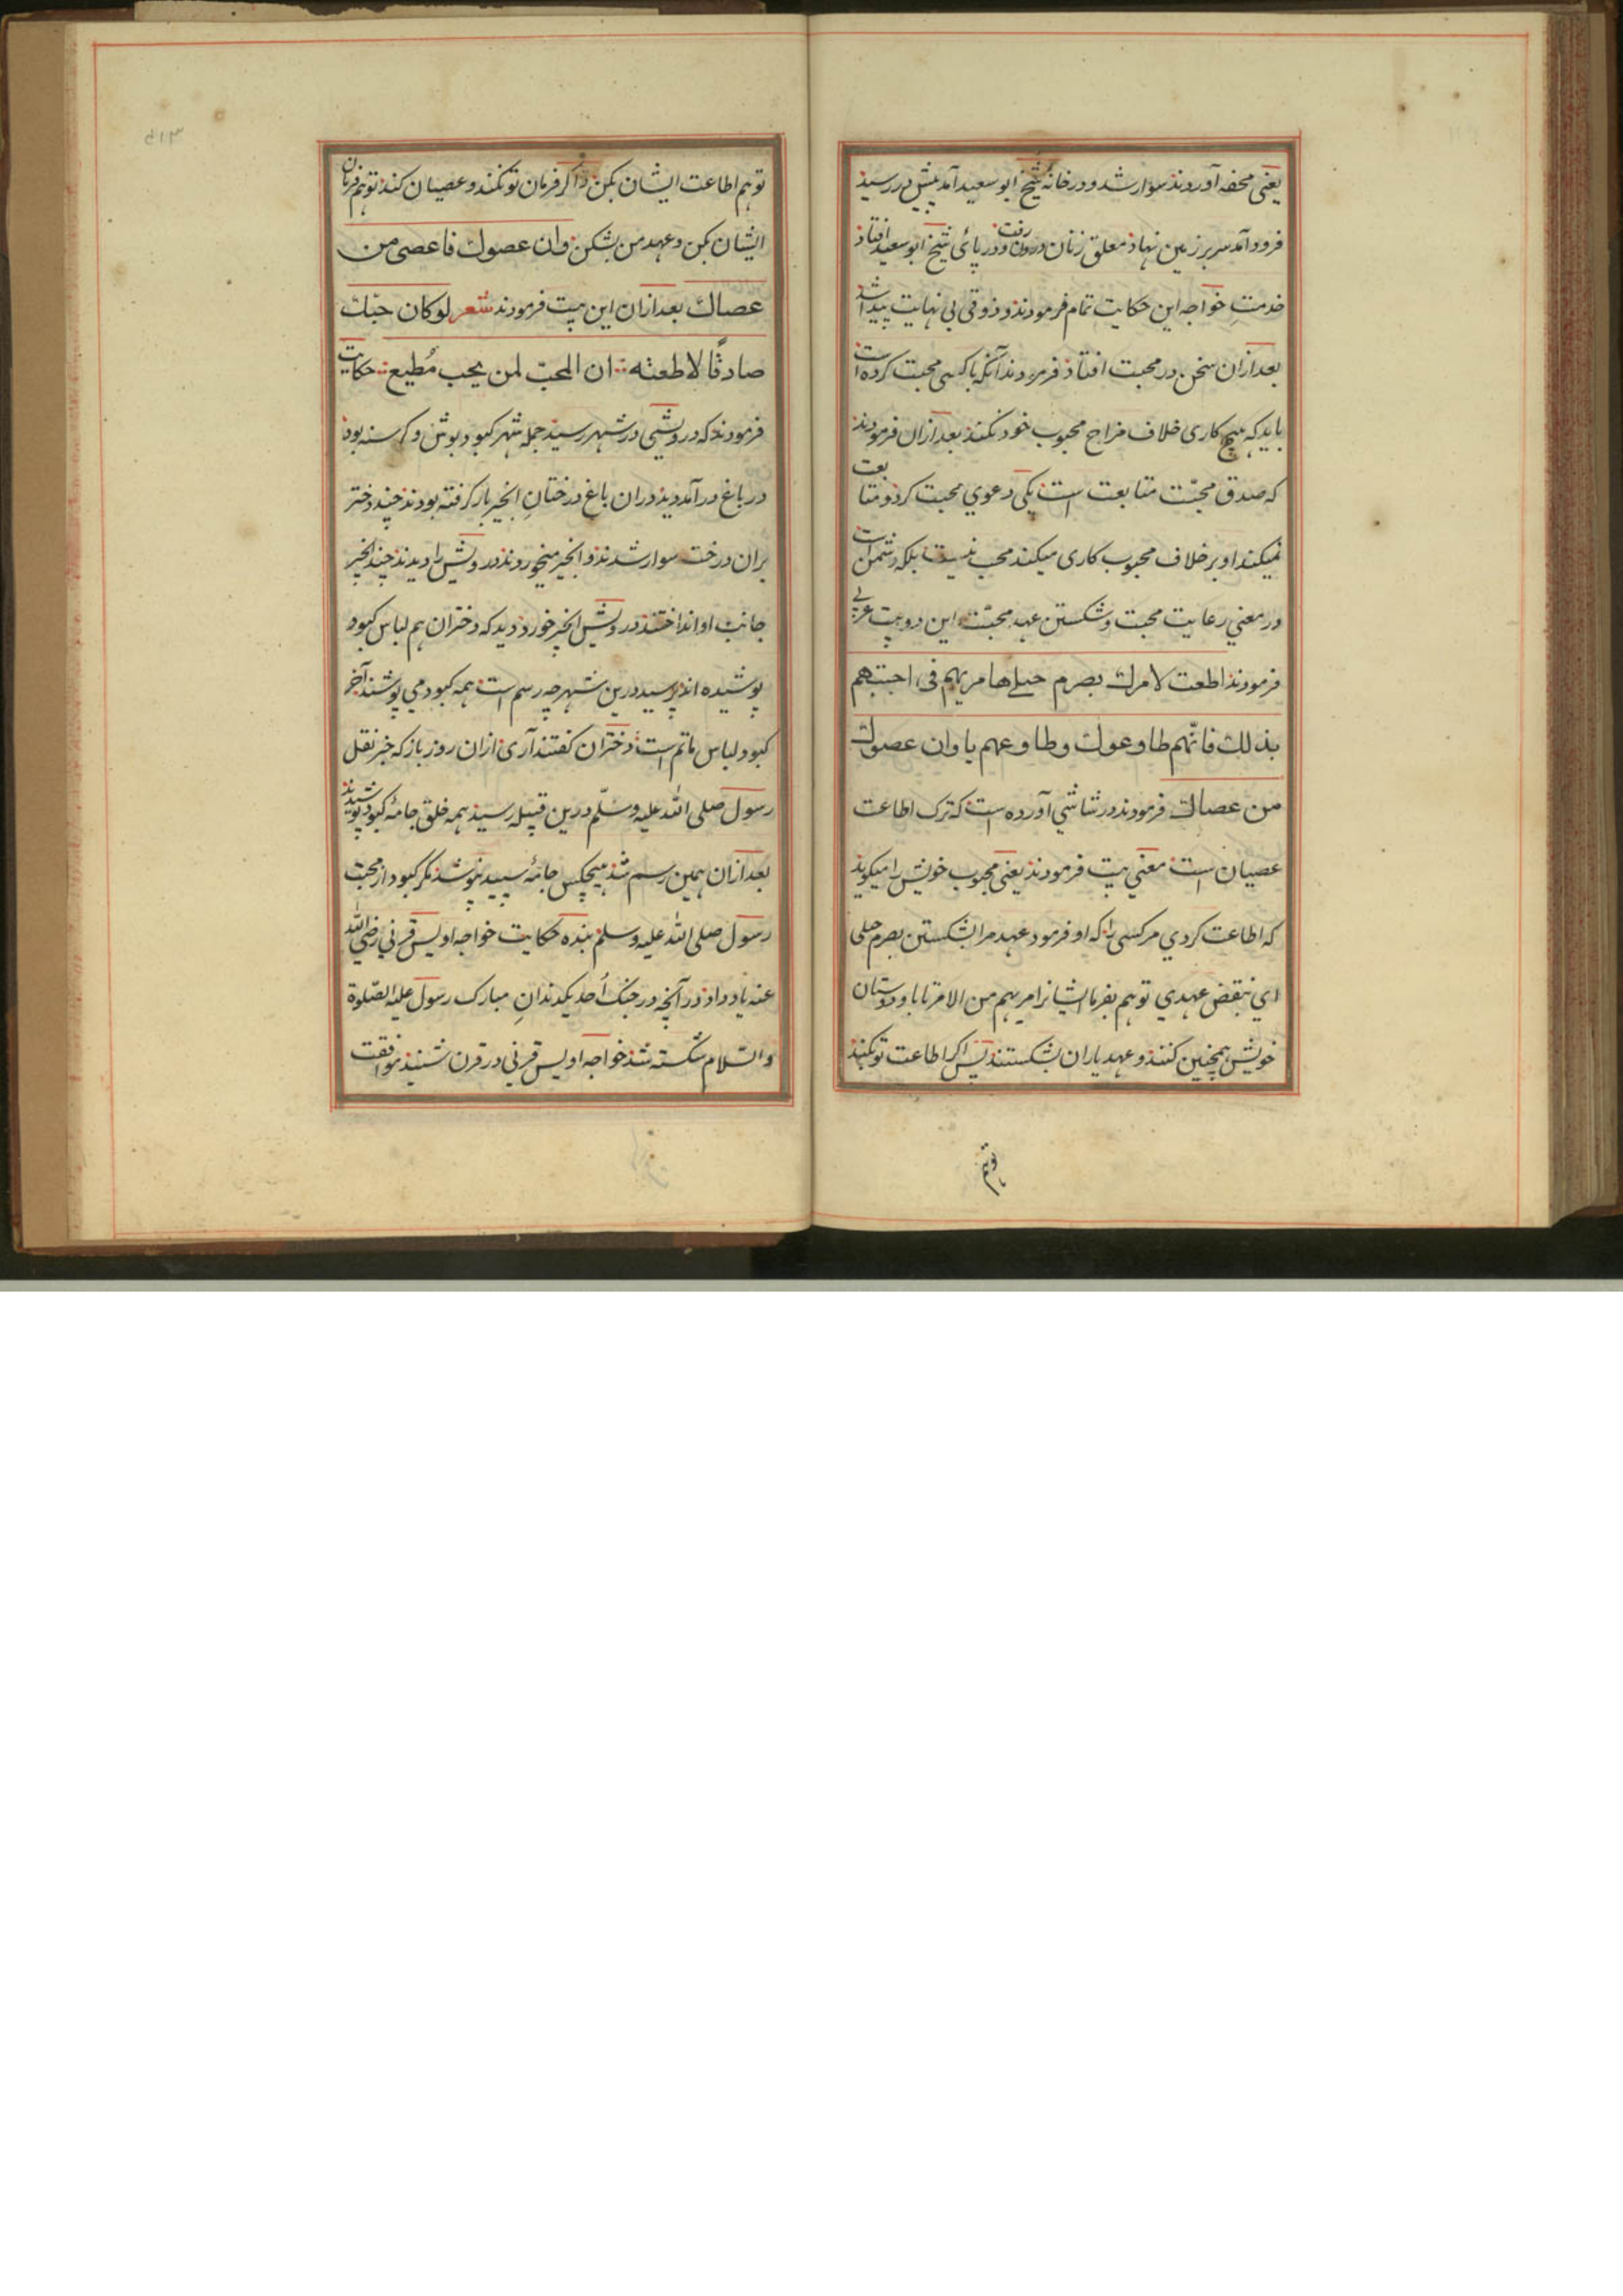 یعنی محفه آوردند سوار شد و در خانه شیخ ابو سعید آمد پیش در رسید
فرود آمد سر بر زمین نهاد معلق زنان درون رفت و در پائی شیخ ابو سعید افتاد
خدمتِ خواجه این حکایت تمام فرمودند و ذوقی بی نهایت پیدا شد
بعد ازان سخن در محبت افتاد فرمودند آنکه با کسی محبت کرده است
باید که هیچ کاری خلاف مزاج محبوب خود نکند بعد ازان فرمودند
که صدق محبّت متابعت است یکی دعوي محبت کرد و متابعت
نمیکند او بر خلاف محبوب کاری میکند محب نیست بلکه دشمن است
در معني رعایت محبت و شکستن عهد محبّت این دو بیت عربی
فرمودند اطعت لامرك بصرم حبلے ها مریهم فی احبتهم
بذلك فانّهم طاوعوك وطاوعهم یا وان عصوك
من عصاك فرمودند در شاشي آورده است که ترک اطاعت
عصیان است معني بیت فرمودند یعنی محبوب خویش را میکوید
که اطاعت کردي مر کسی را که او فرمود عهد مرا بشکستن بصرم حبلی
اي بنقض عهدي تو هم بفرما ایشانرا مریهم من الامر تا با دوستان
خویش همچنین کنند و عهد یاران بشکستند پس اکر اطاعت تو کنند
توهم
تو هم اطاعت ایشان بکن و اکر فرمان تو نکنند و عصیان کنند تو هم فرمان
ایشان مکن و عهد من بشکن وان عصوك فاعصی من
عصاك بعد ازان این بیت فرمودند شعر لو کان حبّك
صادقًا لاطعته ان المحبّ لمن یحب مُطیع حکایت
فرمودند که درویشی در شهر رسید جمله شهر کبود پوش و کرسنه بود
در باغ در آمد دید دران باغ درختانِ انجیر بار کرفته بودند چند دختر
بران درخت سوار شدند و انجیر میخوردند درویش را دیدند چند انجیر
جانب او انداختند درویش انجیر خورد دید که دختران هم لباس کبود
پوشیده اند پرسید درین شهر چه رسم است همه کبود می پوشند آخر
کبود لباس ماتم است دختران کفتند آری ازان روز باز که خبر نقل
رسول صلی الله علیه وسلّم درین قبیله رسید همه خلق جامهٔ کبود پوشیدند
بعد ازان همین رسم شد هیچکس جامهٔ سپید نپوشد مکر کبود از محبت
رسول صلی الله علیه وسلم بنده حکایت خواجه اویس قرني رضی الله
عنه یاد داد در آنچه در جنک اُحد یکدندانِ مبارک رسول علیه الصّلوة
والسّلام شکسته شد خواجه اویس قرني در قرن شنید موافقت